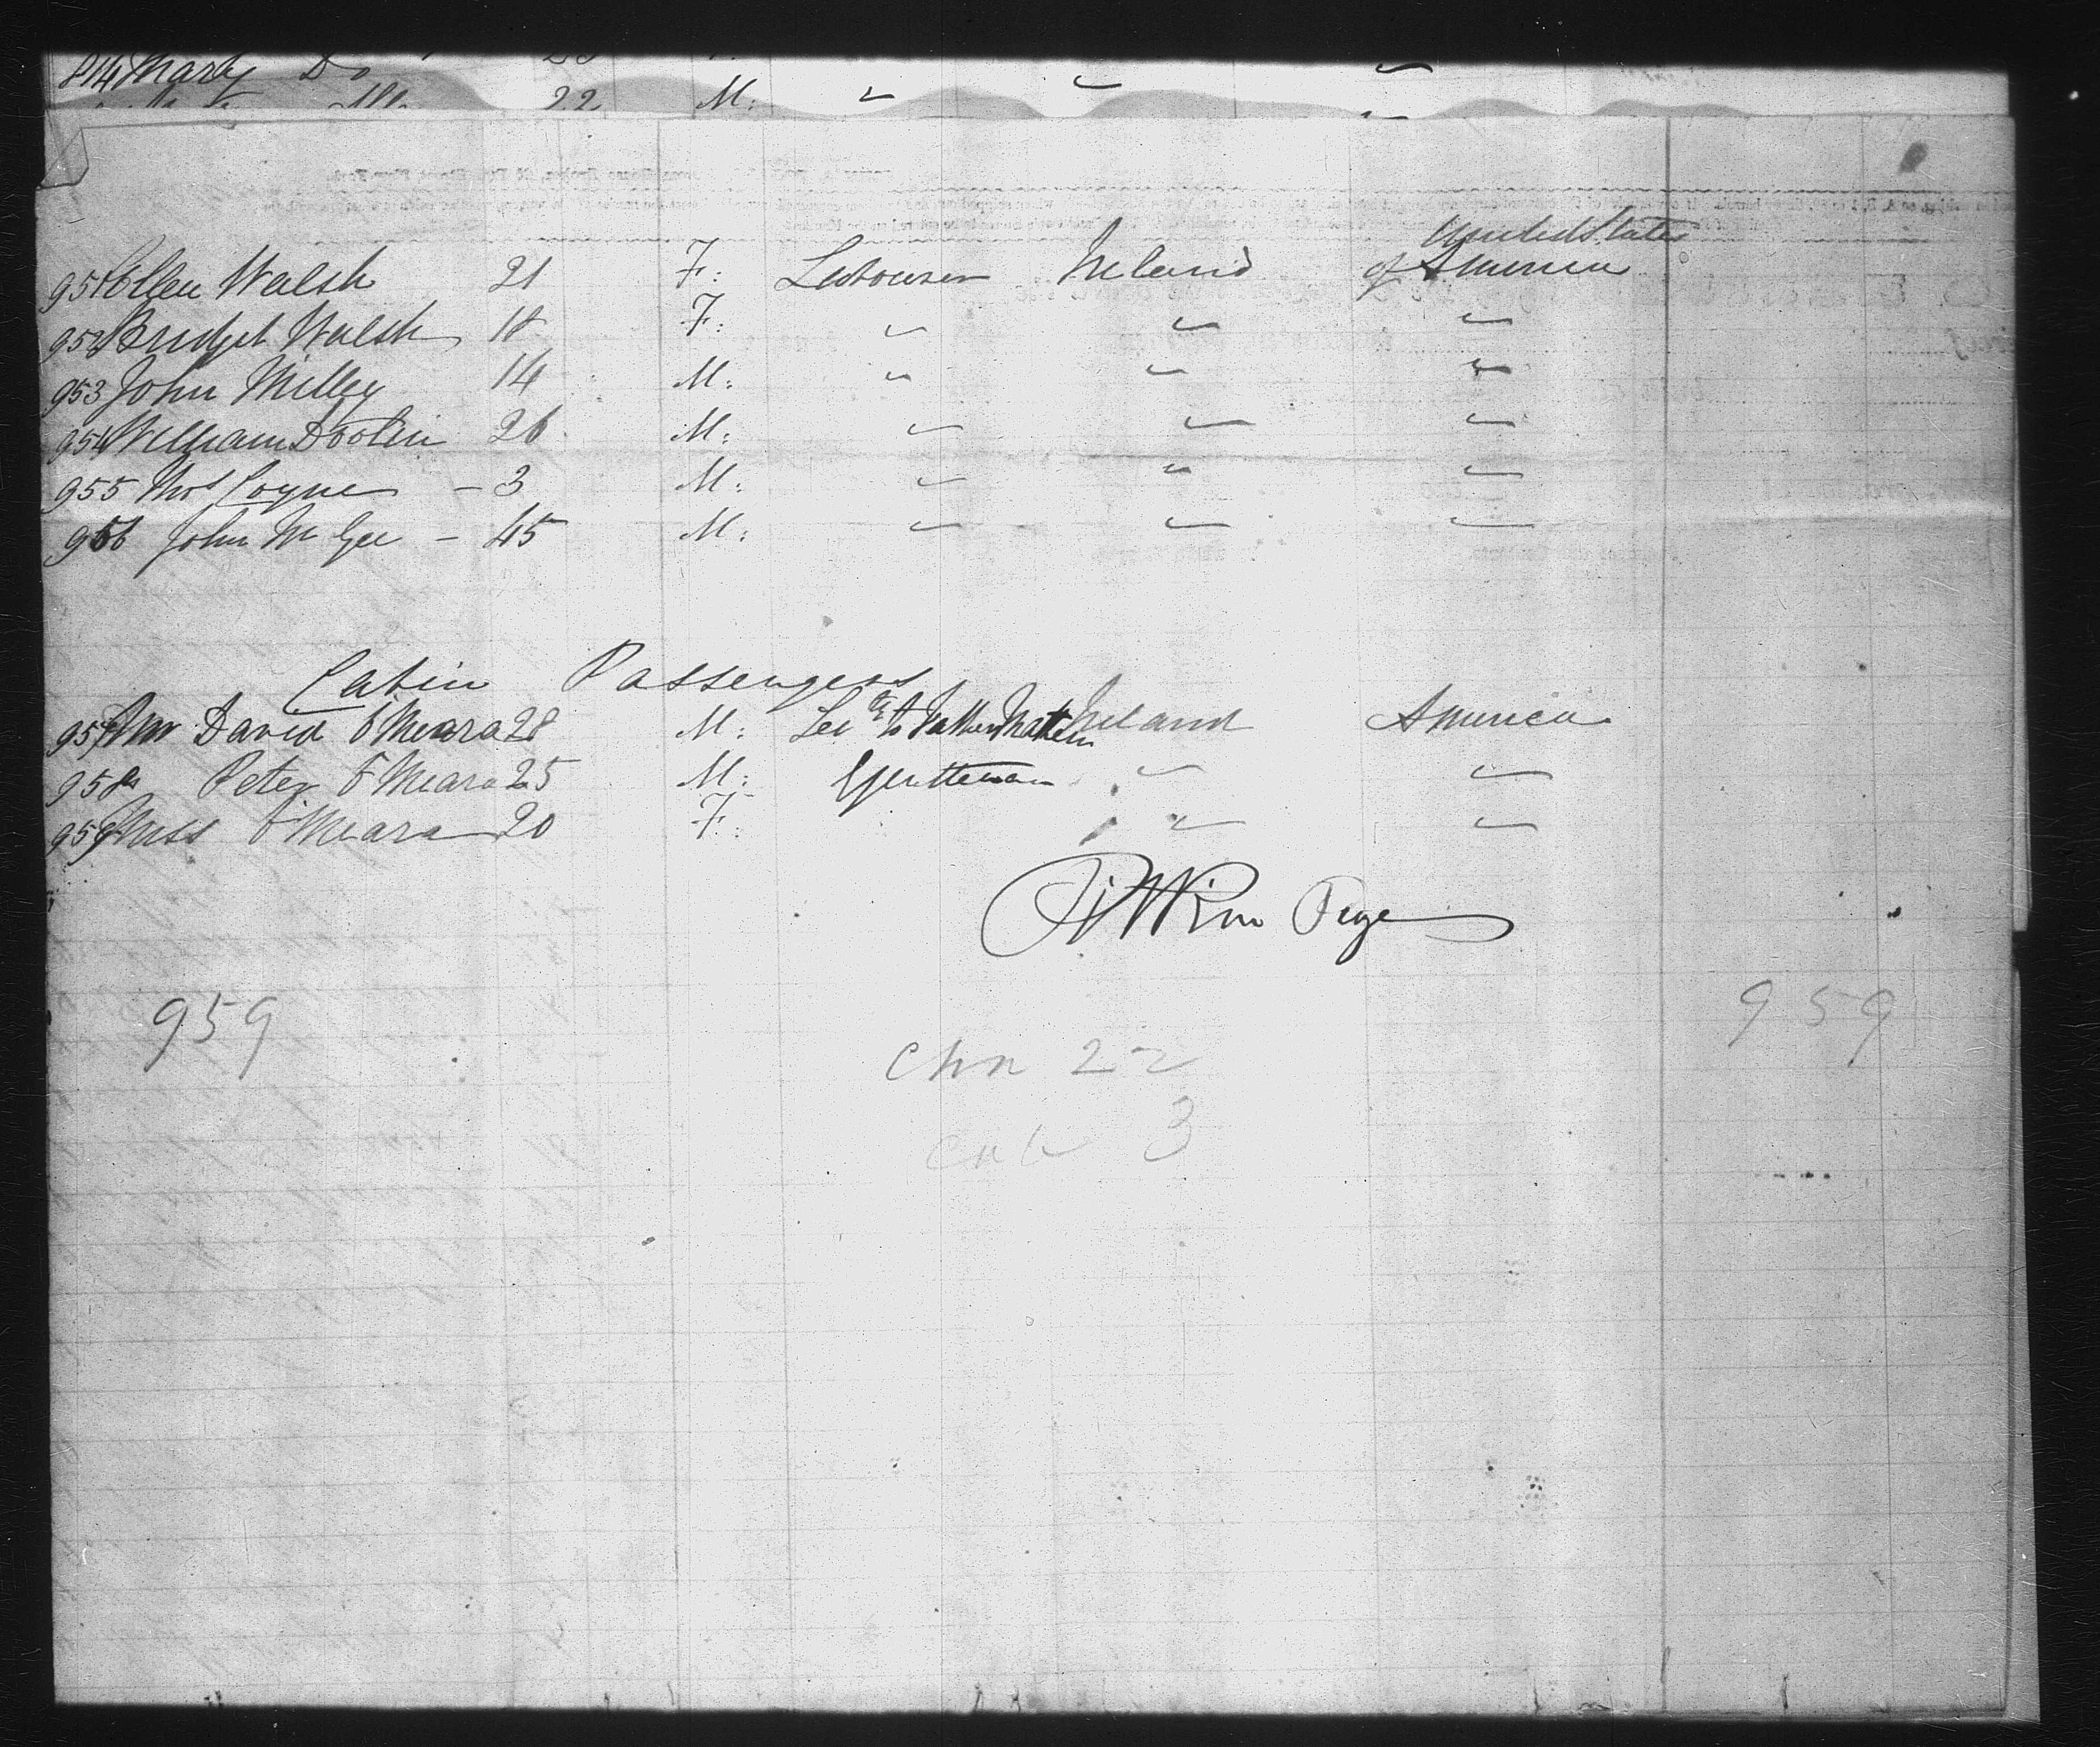 814 Mary Do
22 M: "
United States
951 Ellen Walsh 21 F: Labourer Ireland of America
952 Bridget Walsh 18 F: " " "
953 John Milley 14 M: " " "
954 William Doolin 26 M: " " "
955 Thos Coyne - 3 M: " " "
956 John McGee - 45 M: " " "
Cabin Passengers
957 Mr David O'Meara 28 M: Secty to Father Mathew Ireland America
958 Peter O'Meara 25 M: Gentleman " "
959 Miss O'Meara 20 F: " "
959 959
Chn 22
Cab 3